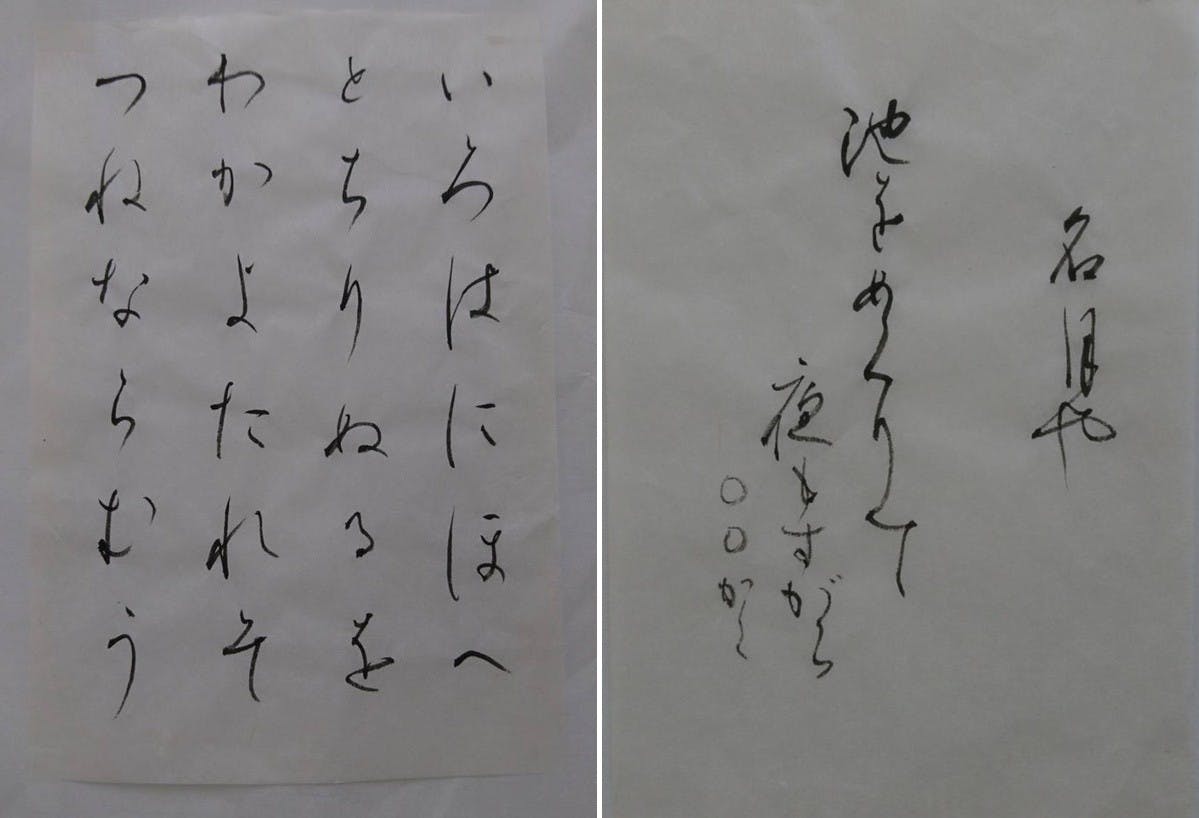 いろはにほへ
とちりぬるを
わかよたれそ
つねならむう
名月や
池をめぐりて
夜もすがら
〇〇かく